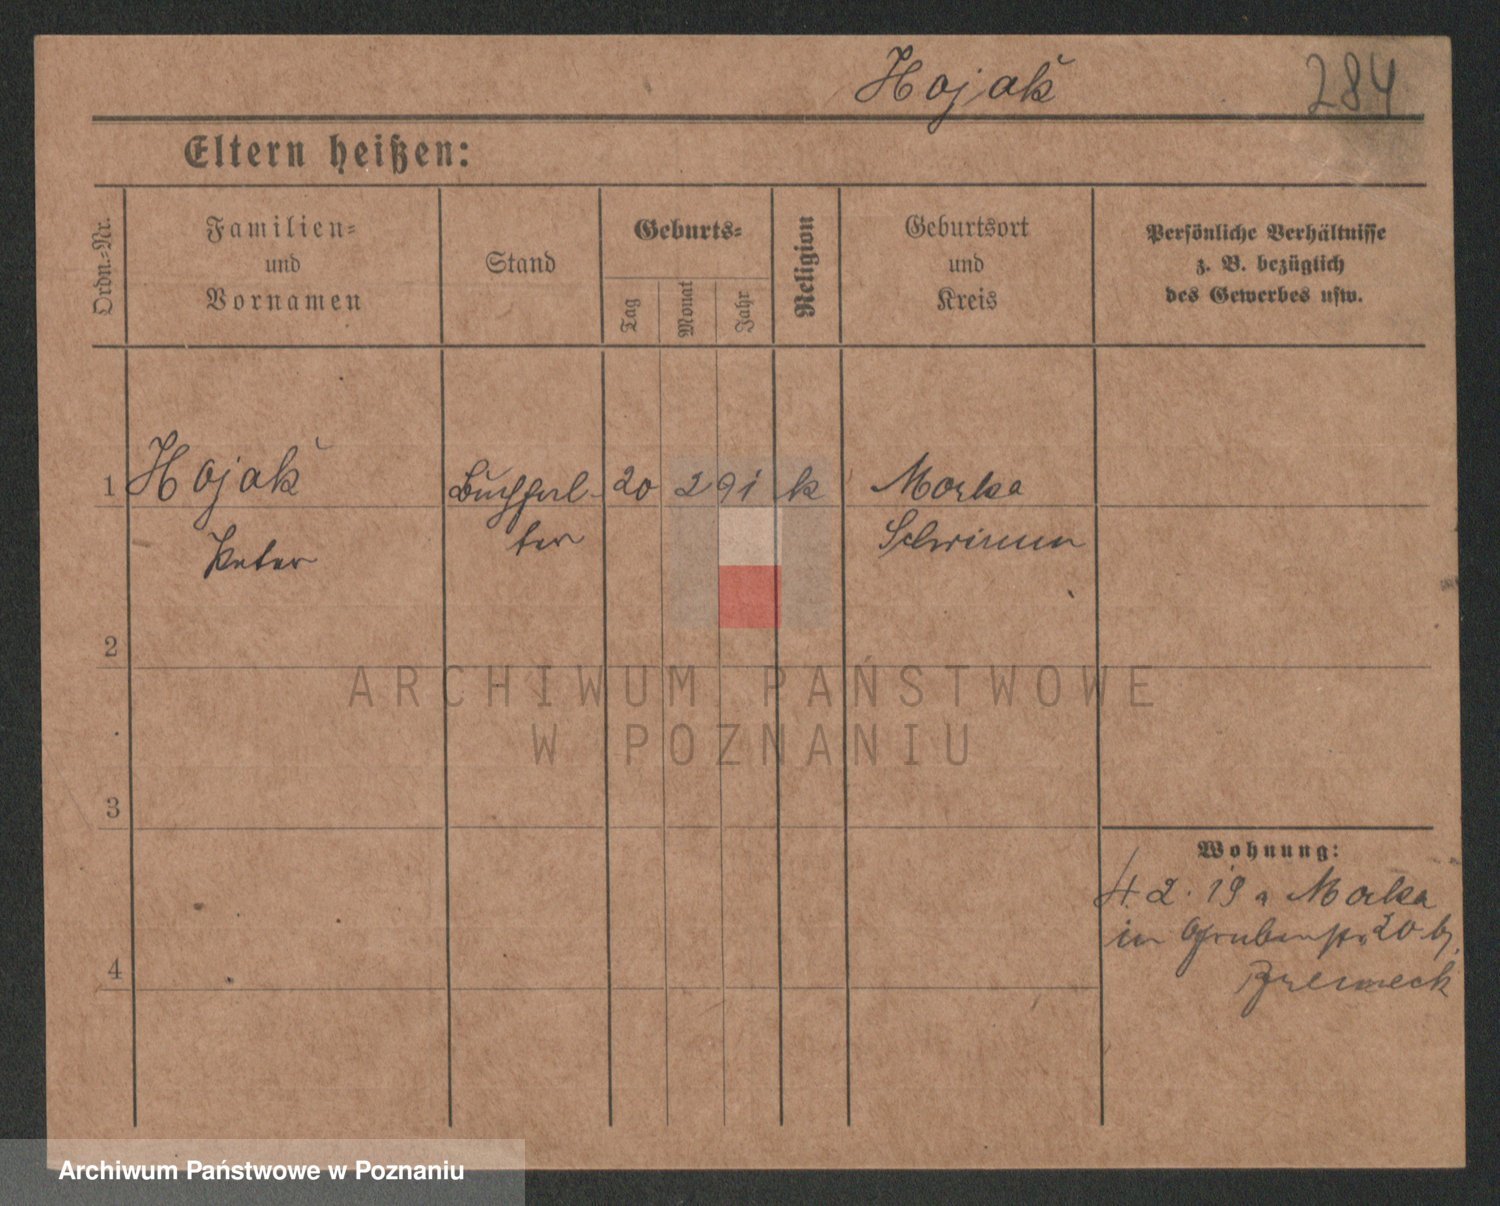 Hojak 284
Eltern heißen:
Ordn.-Nr.
Familien-
und
Vornamen
Stand
Geburts-
Tag
Monat
Jahr
Religion
Geburtsort
und
Kreis
Persönliche Verhältnisse
z. B. bezüglich
des Gewerbes usw.
1 Hojak Buchhal- 20 2 91 k Morka
Peter ter Schrimm
2
ARCHIWUM PAŃSTWOWE
W POZNANIU
3
Wohnung:
4. 2. 19 a Morka
in Grubenstr 20 b/
4
Archiwum Państwowe w Poznaniu